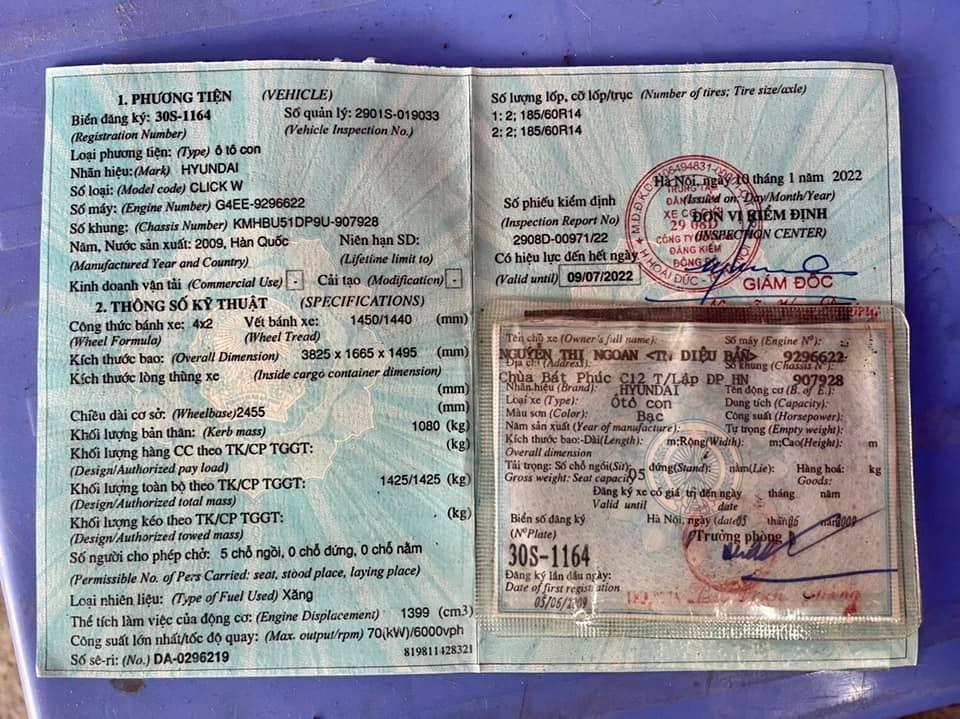 1. PHƯƠNG TIỆN (VEHICLE)
Biển đăng ký: 30S-1164 Số quản lý: 2901S-019033
(Registration Number) (Vehicle Inspection No.)
Loại phương tiện: (Type) ô tô con
Nhãn hiệu: (Mark) HYUNDAI
Số loại: (Model code) CLICK W
Số máy: (Engine Number) G4EE-9296622
Số khung: (Chassis Number) KMHBU51DP9U-907928
Năm, Nước sản xuất: 2009, Hàn Quốc Niên hạn SD:
(Manufactured Year and Country) (Lifetime limit to)
Kinh doanh vận tải (Commercial Use) - Cải tạo (Modification) -
2. THÔNG SỐ KỸ THUẬT (SPECIFICATIONS)
Công thức bánh xe: 4x2 Vết bánh xe: 1450/1440 (mm)
(Wheel Formula) (Wheel Tread)
Kích thước bao: (Overall Dimension) 3825 x 1665 x 1495 (mm)
Kích thước lòng thùng xe (Inside cargo container dimension)
(mm)
Chiều dài cơ sở: (Wheelbase)2455 (mm)
Khối lượng bản thân: (Kerb mass) 1080 (kg)
Khối lượng hàng CC theo TK/CP TGGT: (kg)
(Design/Authorized pay load)
Khối lượng toàn bộ theo TK/CP TGGT: 1425/1425 (kg)
(Design/Authorized total mass)
Khối lượng kéo theo TK/CP TGGT: (kg)
(Design/Authorized towed mass)
Số người cho phép chở: 5 chỗ ngồi, 0 chỗ đứng, 0 chỗ nằm
(Permissible No. of Pers Carried: seat, stood place, laying place)
Loại nhiên liệu: (Type of Fuel Used) Xăng
Thể tích làm việc của động cơ: (Engine Displacement) 1399 (cm3)
Công suất lớn nhất/tốc độ quay: (Max. output/rpm) 70(kW)/6000vph
Số sê-ri: (No.) DA-0296219 819811428321
Số lượng lốp, cỡ lốp/trục (Number of tires; Tire size/axle)
1: 2; 185/60R14
2: 2; 185/60R14
Hà Nội, ngày 10 tháng 1 năm 2022
(Issued on: Day/Month/Year)
Số phiếu kiểm định ĐƠN VỊ KIỂM ĐỊNH
(Inspection Report No) (INSPECTION CENTER)
2908D-00971/22
Có hiệu lực đến hết ngày
(Valid until) 09/07/2022
GIÁM ĐỐC
TRUNG TÂM
ĐĂNG KIỂM
XE CƠ GIỚI
29 08D
CÔNG TY
ĐĂNG KIỂM
Tên chủ xe (Owner's full name): Số máy (Engine N°):
NGUYỄN THỊ NGOAN <TN DIỆU BẢN> 9296622
Địa chỉ (Address): Số khung (Chassis N°):
Chùa Bát Phúc C12 T/Lập ĐP HN 907928
Nhãn hiệu (Brand): HYUNDAI Tên động cơ (B. of E.):
Loại xe (Type): ôtô con Dung tích (Capacity):
Màu sơn (Color): Bạc Công suất (Horsepower):
Năm sản xuất (Year of manufacture): Tự trọng (Empty weight):
Kích thước bao-Dài(Length): m;Rộng(Width): m;Cao(Height): m
Overall dimension
Tải trọng: Số chỗ ngồi(Sit): 05 đứng(Stand): nằm(Lie): Hàng hoá: kg
Gross weight: Seat capacity Goods:
Đăng ký xe có giá trị đến ngày tháng năm
Valid until date
Biển số đăng ký Hà Nội, ngày (date)05 tháng 05 năm 2009
(N°Plate) Trưởng phòng
30S-1164
Đăng ký lần đầu ngày:
Date of first registration
05/05/2009